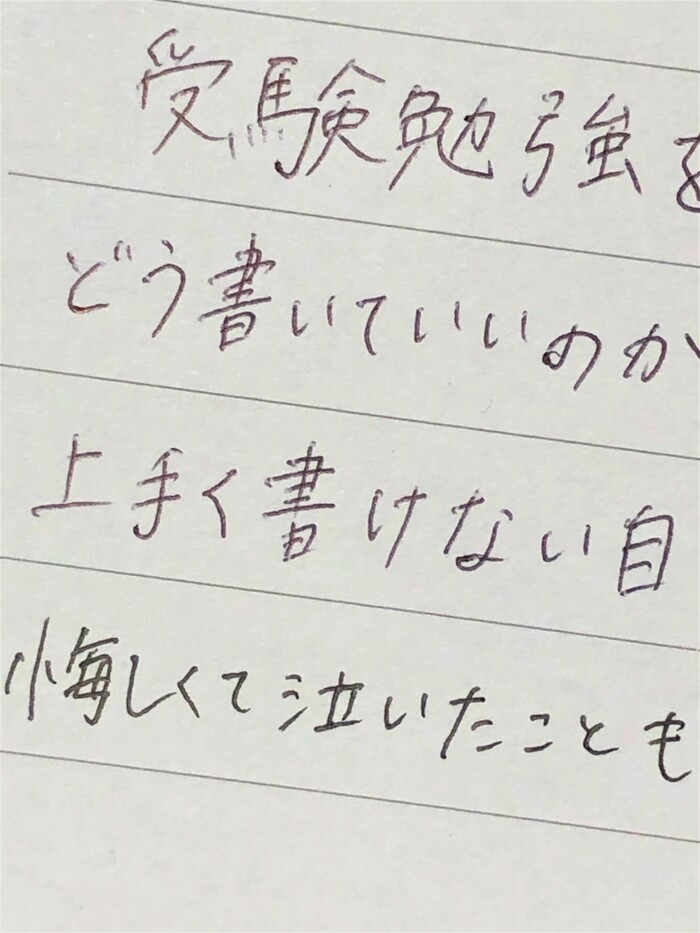 受験勉強を
どう書いていいのか
上手く書けない自
悔しくて泣いたことも